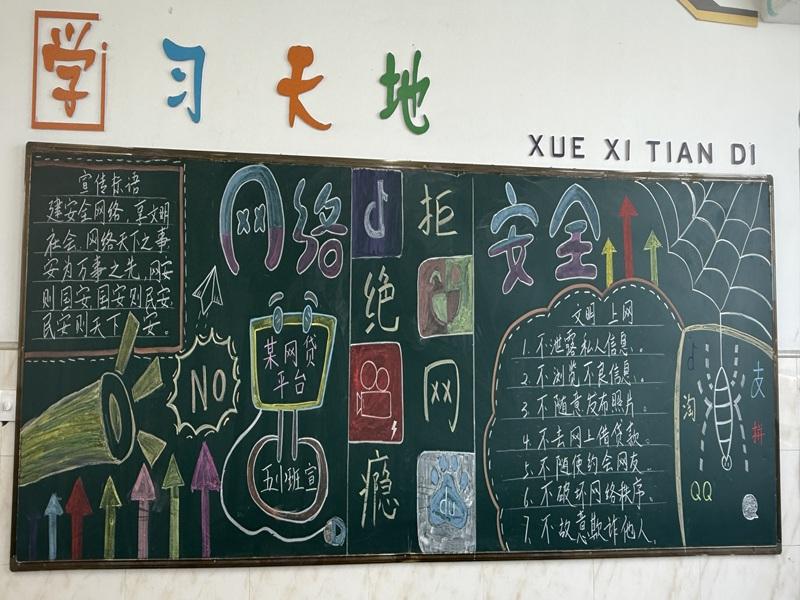 学习天地
XUE XI TIAN DI
宣传标语
建安全网络,享文明
社会.网络天下之事
安为万事之先.网安
则国安国安则民安.
民安则天下  安.
网络
NO
某网贷
平台
五小班宣
拒
绝
网
瘾
du
安全
文明 上网
1.不泄露私人信息。
2.不浏览不良信息.
3.不随意发布照片。
4.不去网上借贷款。
5.不随便约会网友.
6.不破坏网络秩序.
7.不故意欺诈他人.
淘
友
拼
QQ